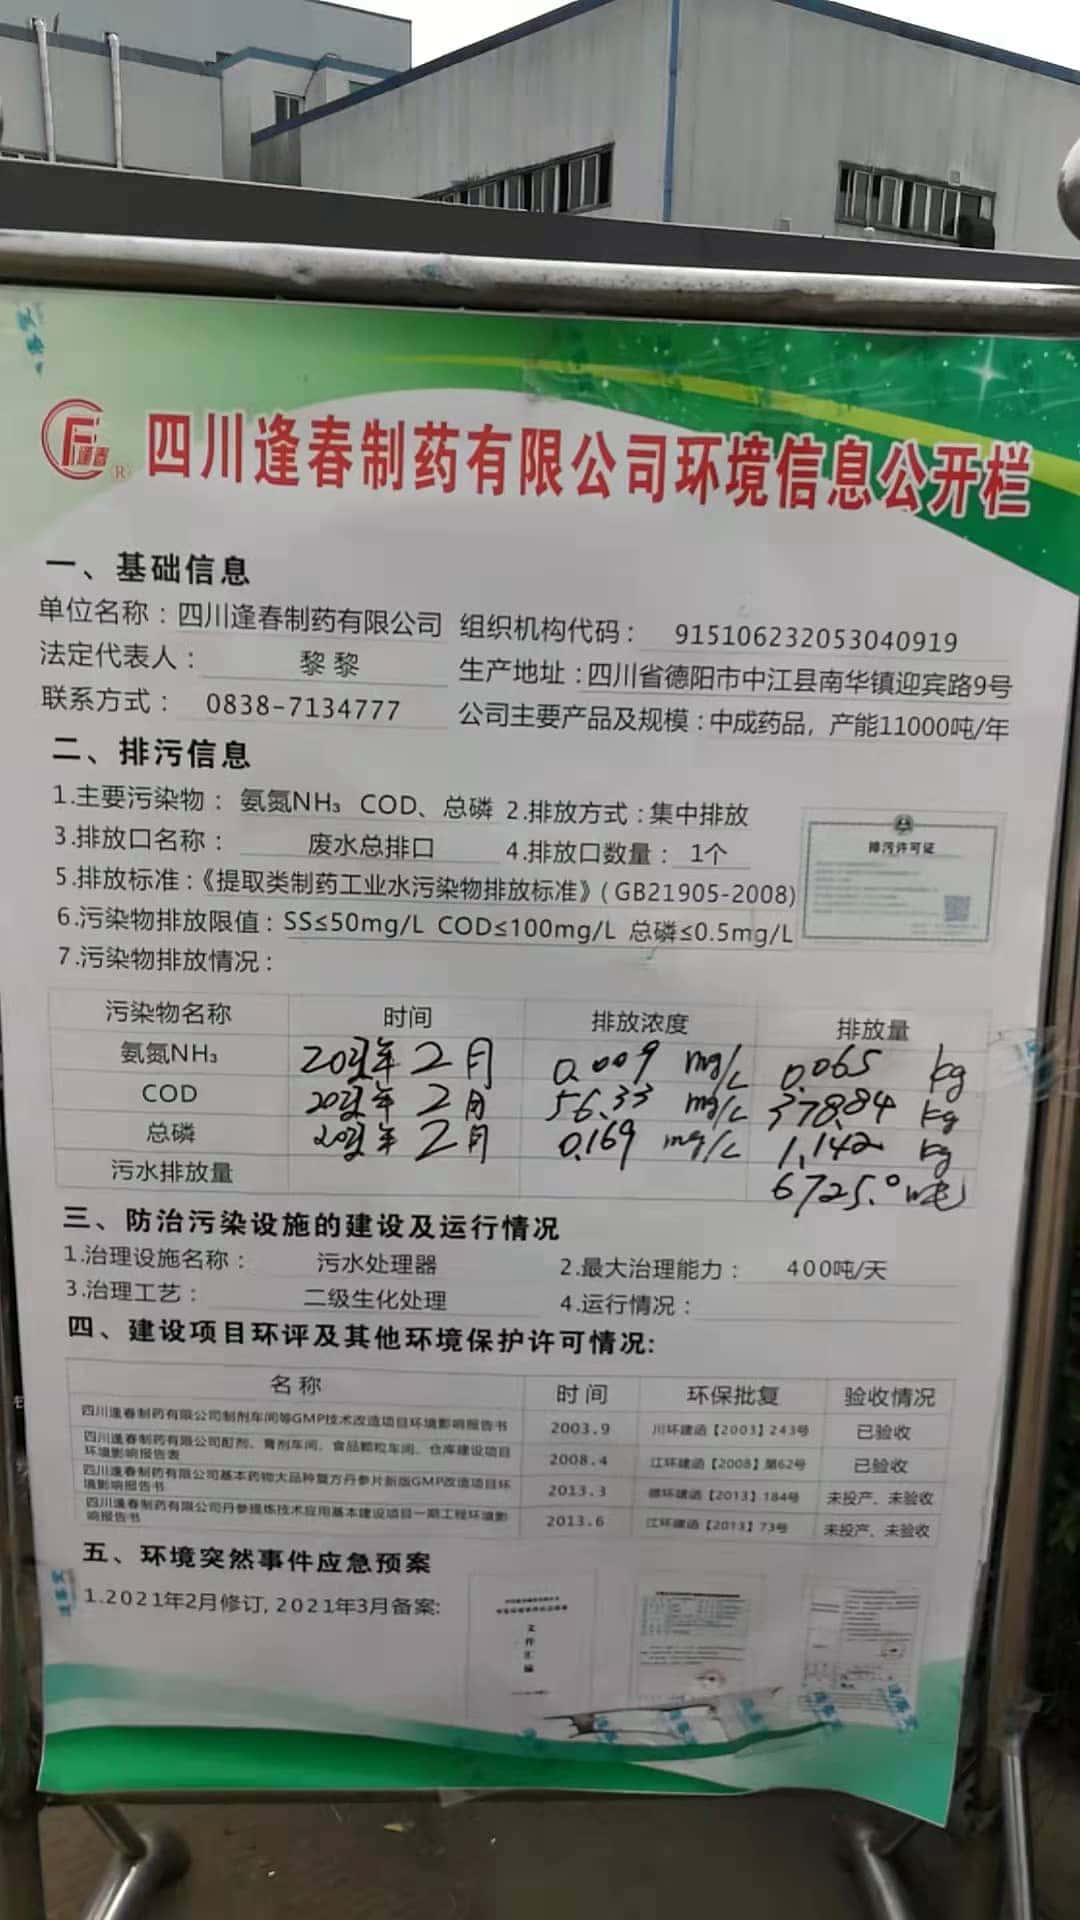 逢春
R
四川逢春制药有限公司环境信息公开栏
一、基础信息
单位名称：四川逢春制药有限公司 组织机构代码： 915106232053040919
法定代表人： 黎黎 生产地址：四川省德阳市中江县南华镇迎宾路9号
联系方式： 0838-7134777 公司主要产品及规模：中成药品，产能11000吨/年
二、排污信息
1.主要污染物： 氨氮NH₃ COD、总磷 2.排放方式：集中排放
3.排放口名称： 废水总排口 4.排放口数量： 1个
5.排放标准：《提取类制药工业水污染物排放标准》(GB21905-2008)
6.污染物排放限值：SS≤50mg/L COD≤100mg/L 总磷≤0.5mg/L
7.污染物排放情况：
排污许可证
污染物名称 时间 排放浓度 排放量
氨氮NH₃ 2月 0.009 mg/L 0.065 kg
COD 2月 56.33 mg/L 378.84 kg
总磷 2月 0.169 mg/L 1.142 kg
污水排放量 6725.0吨
三、防治污染设施的建设及运行情况
1.治理设施名称： 污水处理器 2.最大治理能力： 400吨/天
3.治理工艺： 二级生化处理 4.运行情况：
四、建设项目环评及其他环境保护许可情况:
名称 时间 环保批复 验收情况
四川逢春制药有限公司制剂车间等GMP技术改造项目环境影响报告书 2003.9 川环建函【2003】243号 已验收
四川逢春制药有限公司酊剂、膏剂车间、食品颗粒车间、仓库建设项目
环境影响报告表 2008.4 江环建函【2008】第62号 已验收
四川逢春制药有限公司基本药物大品种复方丹参片新版GMP改造项目环
境影响报告书 2013.3 德环建函【2013】184号 未投产、未验收
四川逢春制药有限公司丹参提炼技术应用基本建设项目一期工程环境影
响报告书 2013.6 江环建函【2013】73号 未投产、未验收
五、环境突然事件应急预案
1.2021年2月修订, 2021年3月备案:
文件汇编